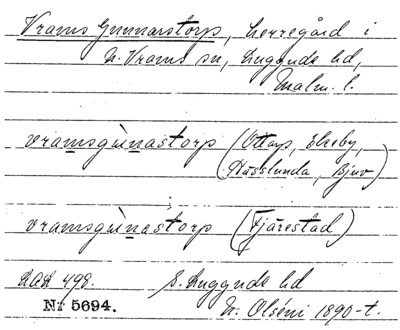 Vrams Gunnarstorp, herregård i
N. Vrams sn, Luggude hd,
Malm. l.
vramsgùnastorp (Ottarp, Ekeby,
(Hässlunda, Bjuv)
vramsgùnastorp (Fjärestad)
LAL 498. S. Luggude hd
Nr 5694. N. Olséni 1890-t.